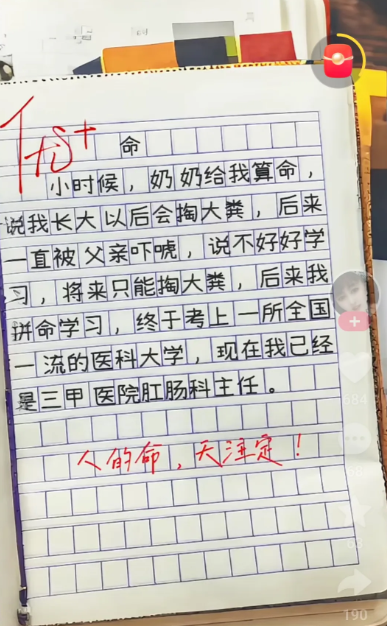 优+
命
小时候，奶奶给我算命，
说我长大以后会掏大粪，后来
一直被父亲吓唬，说不好好学
习，将来只能掏大粪，后来我
拼命学习，终于考上一所全国
一流的医科大学，现在我已经
是三甲医院肛肠科主任。
人的命，天注定！
190